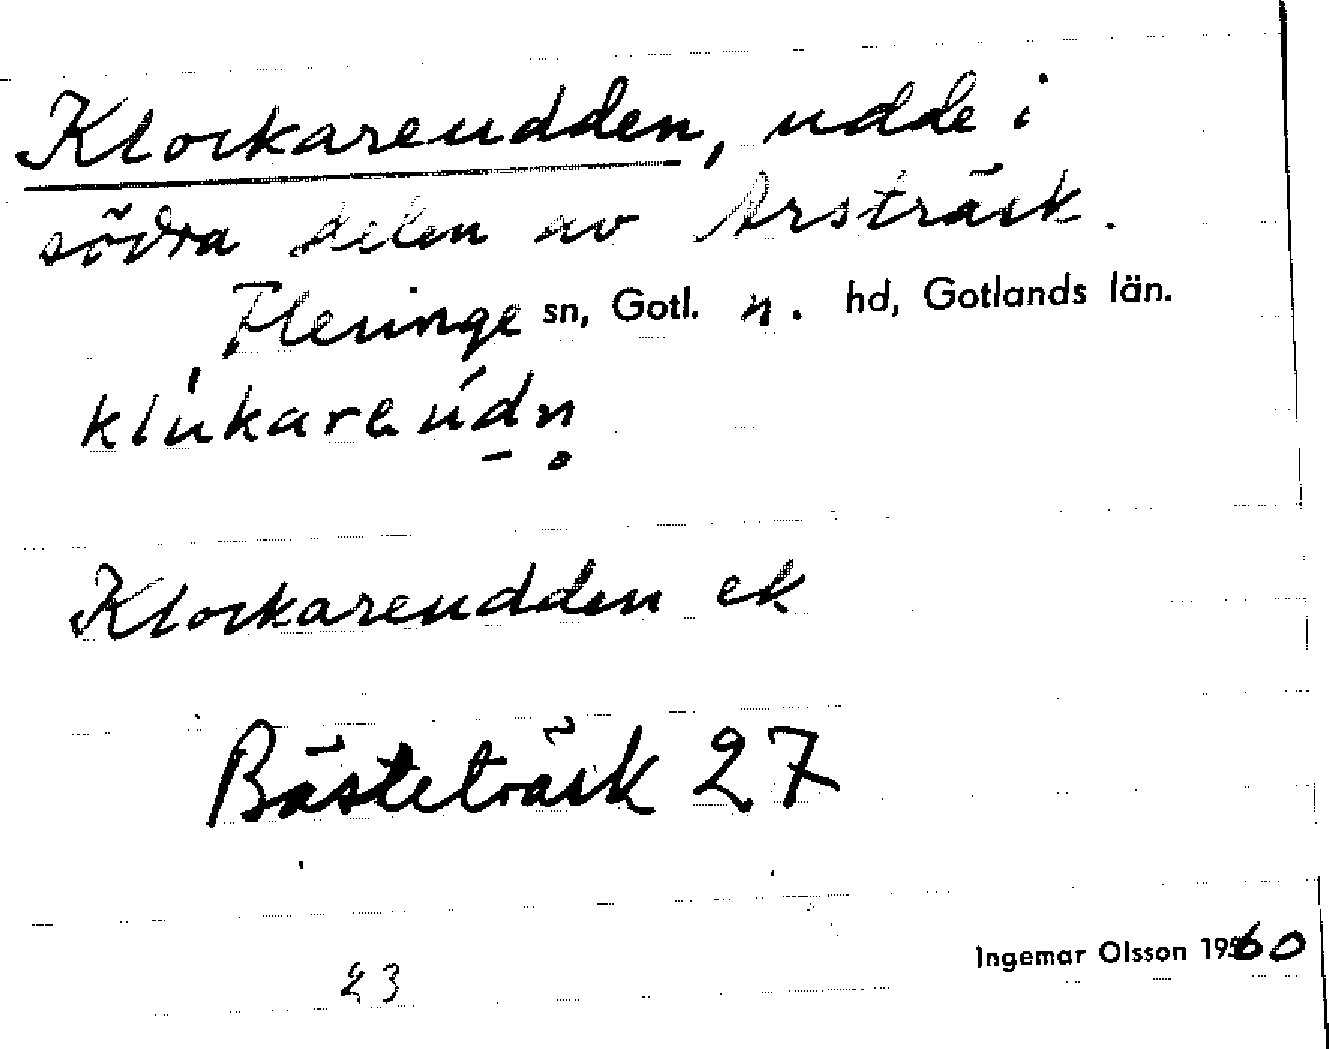 Klockareudden, udde i
södra delen av Arsträsk.
Fleringe sn, Gotl. n. hd, Gotlands län.
klukareudn
Klockareudden ek
Bästeträsk 27
Ingemar Olsson 1960
23